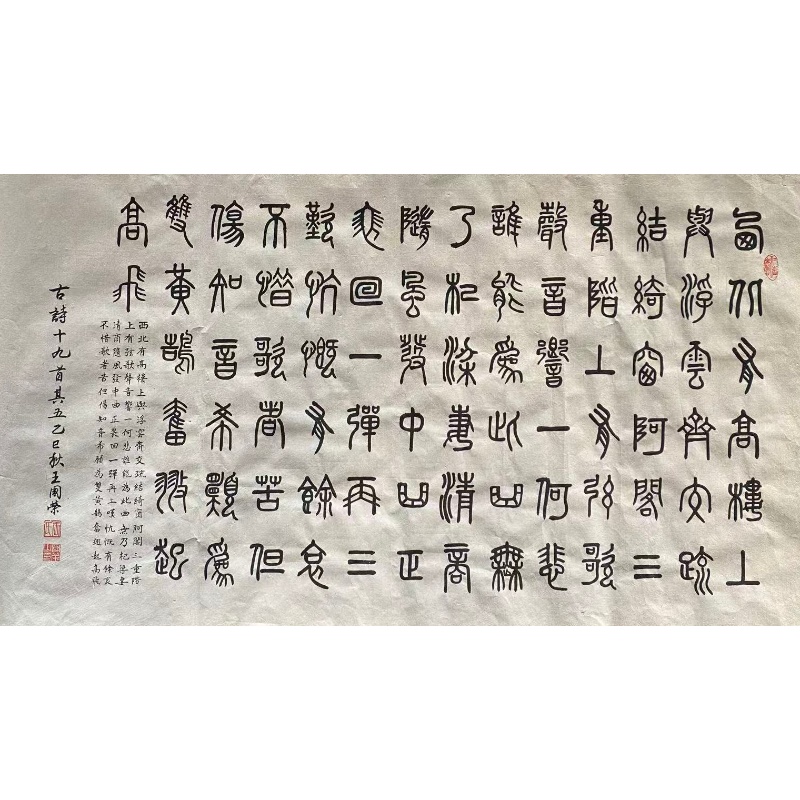 西北有高樓上
與浮雲齊交疏
結綺窗阿閣三
重階上有弦歌
聲音響一何悲
誰能爲此曲無
乃杞梁妻清商
隨風發中曲正
裴回一彈再三
歎忼慨有餘哀
不惜歌者苦但
傷知音希願爲
雙黃鵠奮翅起
高飛
西北有高樓上與浮雲齊交疏結綺窗阿閣三重階
上有弦歌聲音響一何悲誰能為此曲無乃杞梁妻
清商隨風發中曲正裴回一彈再三嘆忼慨有餘哀
不惜歌者苦但傷知音希願為雙黃鵠奮翅起高飛
古詩十九首其五乙巳秋王榮